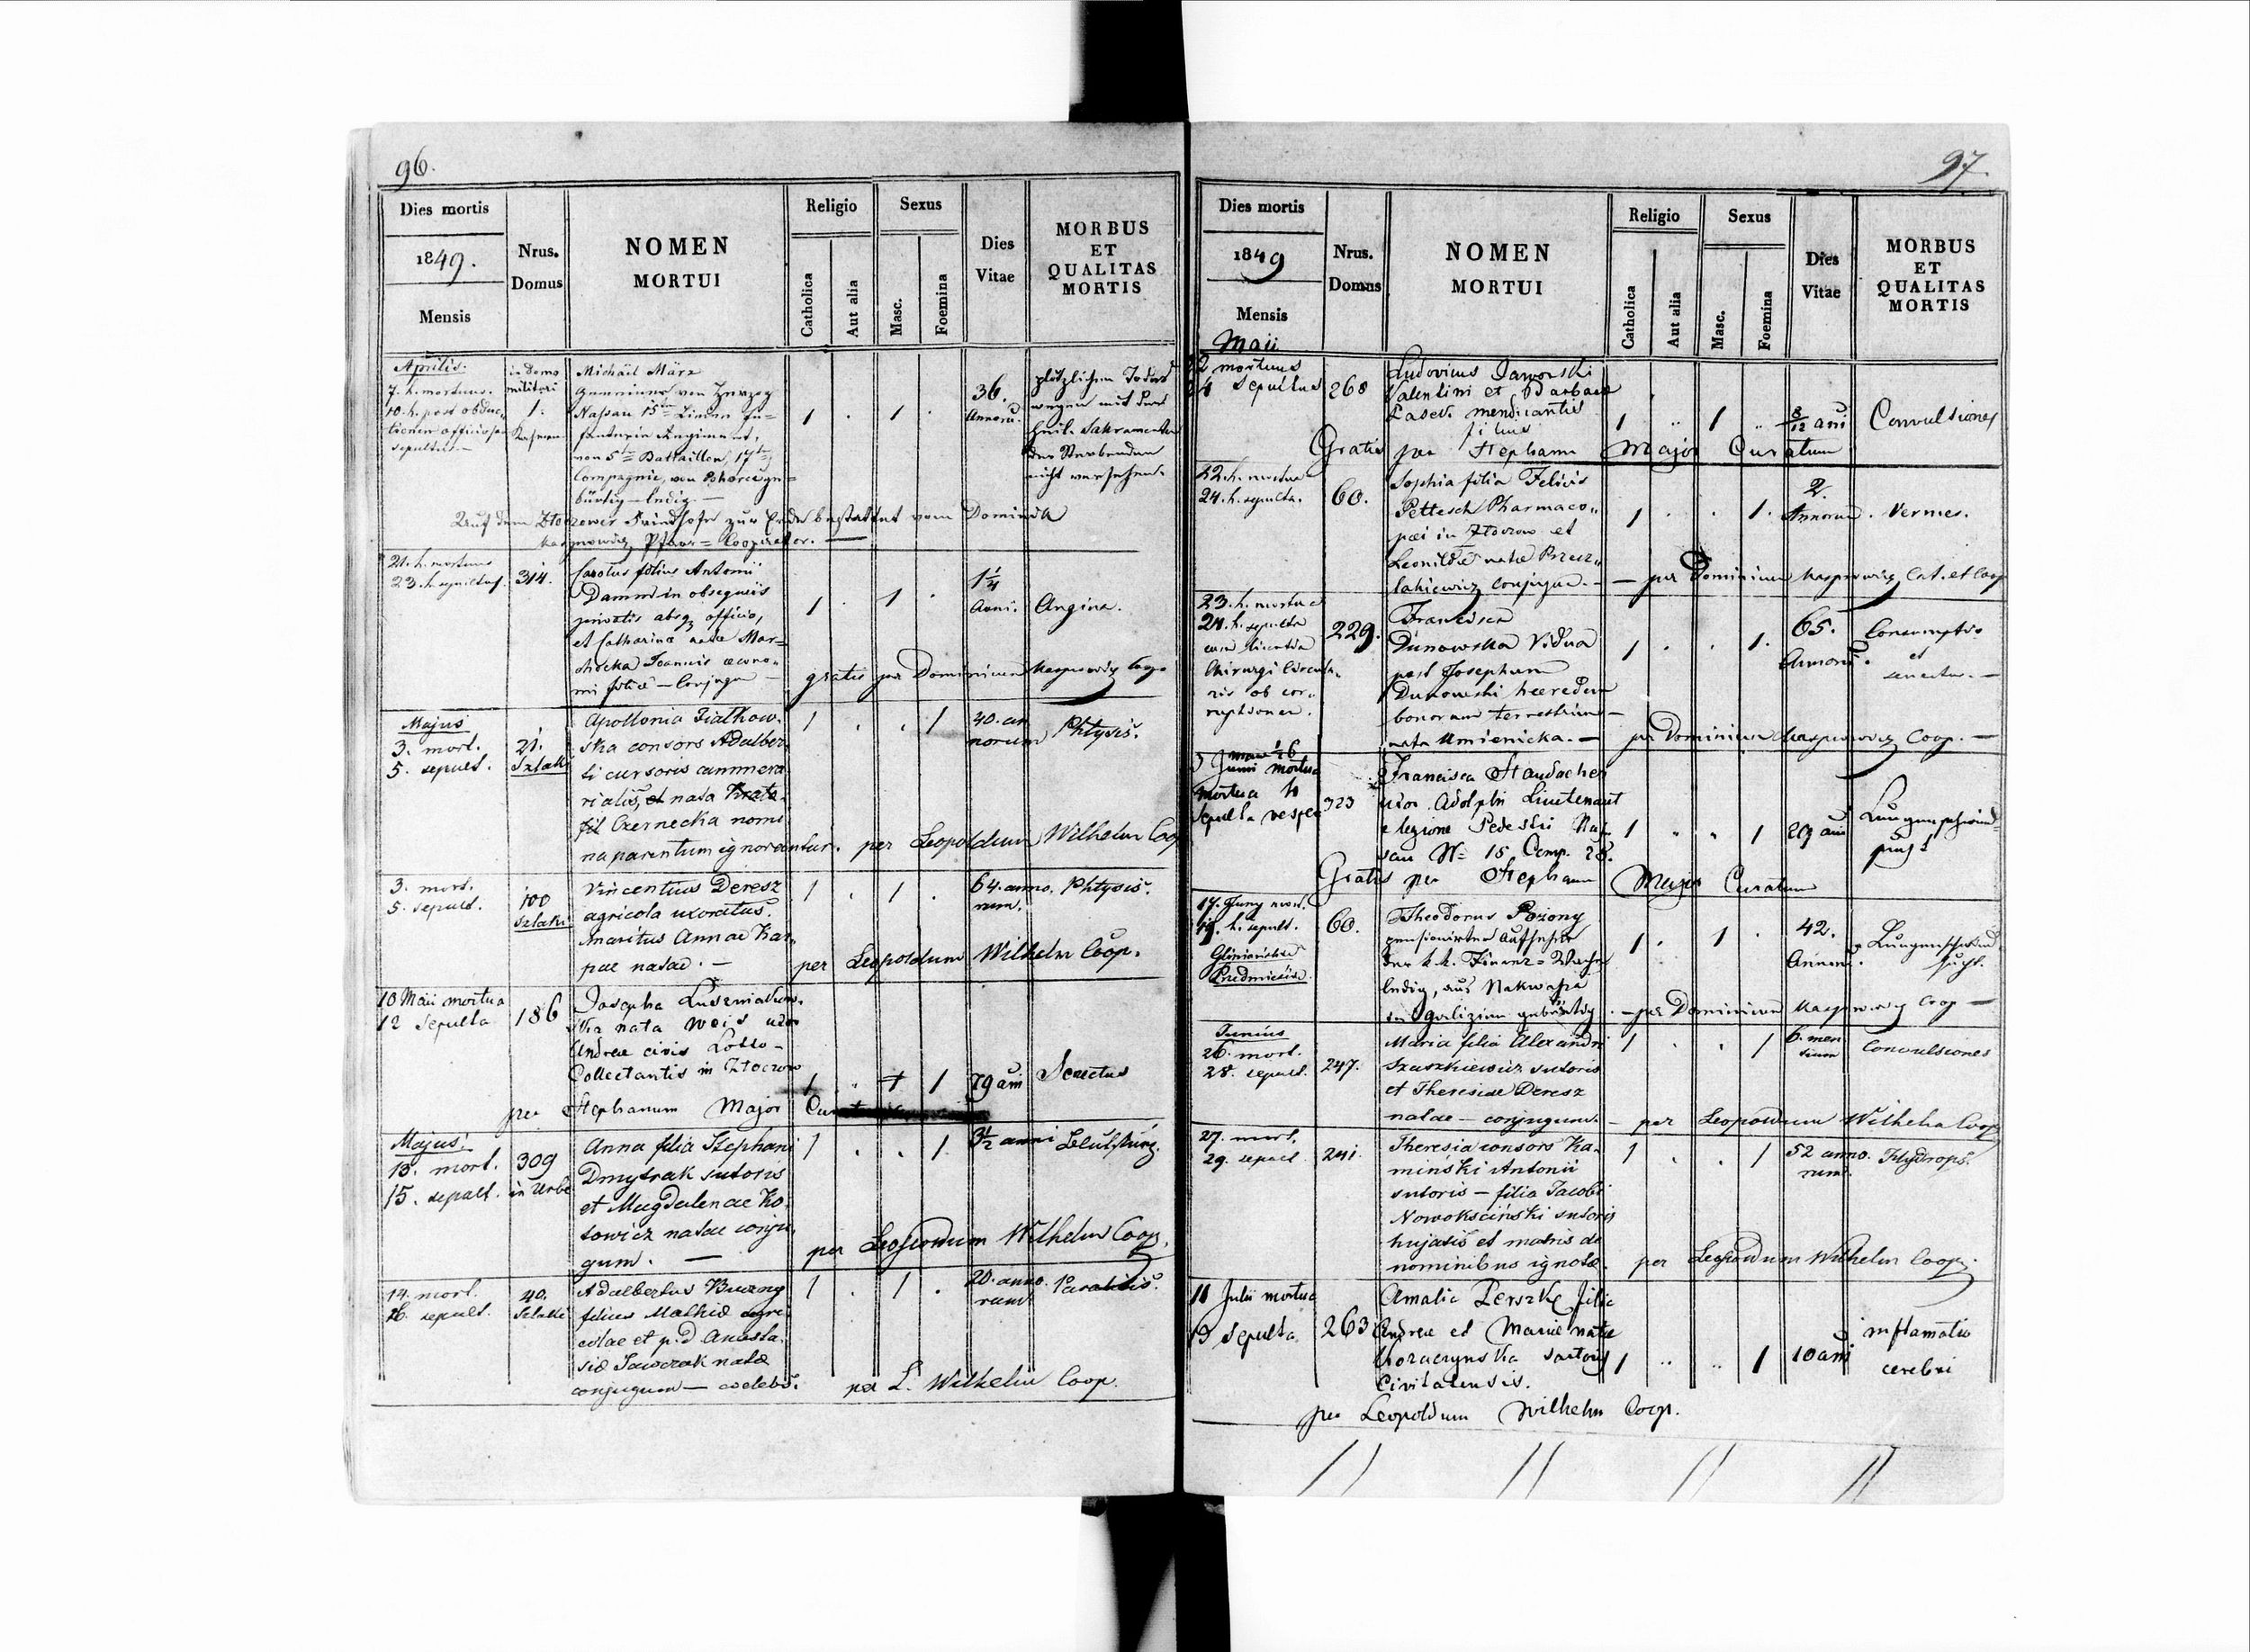 96.
Dies mortis
1849.
Mensis
Nrus.
Domus
NOMEN
MORTUI
Religio
Catholica
Aut alia
Sexus
Masc.
Foemina
Dies
Vitae
MORBUS
ET
QUALITAS
MORTIS
Aprilis.
7. h. mortuus.
10. h. post obduc„
tionem officiosam
sepultus.—
in domo
militari
1.
Michäil März
Gemeiner von Herzog
Nassau 15ten Linien In=
fanterie Regiment,
von 5ten Battaillon, 17te
Compagnie, von
bürtig – ledig. –
1 . 1 .
36.
Annoru.
plötzlichen Todes
wegen mit den
heil. Sakramenten
der Sterbenden
nicht versehen.
Auf dem Złoczower Friedhofe zur Erde bestattet vom Dominik
Kasprowicz Pfarr=Cooperator. —
21. h. mortuus
23. h. sepultus.
314.
Carolus filius Antonii
Damm in obsequiis
privatis absq officio,
et Catharinae natae Mar=
chocka Joannis oecono„
mi filiae – Conjugum –
1 . 1 .
1 1/4
Anni.
Angina.
gratis per Dominicum Kasprowicz Coop.
Majus
3. mort.
5. sepult.
21.
Szlaki
Apollonia Fiałkow„
ska consors Adalber„
ti cursoris cammera„
rialis, et nata
fil Czernecka nomi
na parentum ignorantur.
1 . . 1
40. an
norum
Phtysis.
per Leopoldum Wilhelm Coop
3. mort.
5. sepult.
100
Szlaki
Vincentius Deresz
agricola uxoratus.
maritus Annae Kar„
pae natae. —
1 . 1 .
64. anno.
rum.
Phtysis.
per Leopoldum Wilhelm Coop.
10 Maii mortua
12 Sepulta
186
Josepha
ska nata Weis uxor
Andreae civis Lotto–
Collectantis in Złoczow
1 „ 1 1
79 ani
Senectus
per Stephanum Major
Majus.
13. mort.
15. sepult.
309
in Urbe
Anna filia Stephani
Dmytrak sutoris
et Magdalenae Ko„
towicz natae conju„
gum. —
1 . . 1
3 1/2 anni
per Leopoldum Wilhelm Coop.
14. mort.
16. sepult.
40.
Szlaki
Adalbertus Buczny
filius Mathiae agri
colae et p.d Anasta„
siae Sawczak natae
conjugum — coelebs.
1 . 1 .
20. anno.
rum
Paralisis.
per L. Wilhelm Coop.
97.
Dies mortis
1849
Mensis
Nrus.
Domus
NOMEN
MORTUI
Religio
Catholica
Aut alia
Sexus
Masc.
Foemina
Dies
Vitae
MORBUS
ET
QUALITAS
MORTIS
Maii
22 mortuus
24 Sepultus
268
Ludovicus Jaworski
Valentini et Barbarae
mendicantis
filius
1 „ 1 „
8/12 ani
Convulsiones
Gratis per Stephanum Major Curatum
22. h. mortua
24. h. sepulta.
60.
Sophia filia Felicis
Pettesch Pharmaco„
paei in Złoczow et
Leonildae natae Brzez„
lakiewicz conjugum. –
1 . . 1.
2.
Annorum.
Vermes.
— per Dominicum Kasprowicz Cat. et Coop
23. h. mortua
24. h. sepulta
cum licentia
Chirurgi Circula„
ris ob cor„
ruptionem.
229.
Francisca
Dunowska Vidua
post Josephum
Dunowski haeredem
bonorum terrestrium –
nata Umienicka. —
1 . . 1.
65.
Annoru.
Consumptio
et
senectus. —
per Dominicum Kasprowicz Coop. —
Junii mortua
mortua h
Sepulta vespe
323
Francisca Standacher
uxor Adolphi Lieutenant
e legione Pedestri Nas
sau No 15 Comp. 28.
1 „ „ 1
29 ani
Lungenschwind=
sucht
Gratis per Stephanum Major Curatum
17. Juny mort.
19. h. sepult.
Gliniańskie
Przedmieście
60.
Theodorus Pożony
pensionirter Aufseher
der k.k. Finanz=Wache
ledig, aus Nakwasza
in Galizien gebürtig.
1 . 1 .
42.
Annoru.
Lungenschwind„
sucht.
— per Dominicum Kasprowicz Coop —
Junius
26. mort.
28. sepult.
247.
Maria filia Alexandri
Szuszkiewicz sutoris
et Theresiae Deresz
natae — conjugum. –
1 . . 1
6. men
sium
Convulsiones
per Leopoldum Wilhelm Coop
27. mort.
29. sepult
241.
Theresia consors Ka„
miński Antonii
sutoris — filia Jacobi
Nowoksciński sutoris
hujatis et matris de
nominibus ignotae.
1 . . 1
52 anno.
rum.
Hydrops.
per Leopoldum Wilhelm Coop.
11 Julii mortua
13 Sepulta
263
Amalia Perszke filia
Andreae et Mariae natae
sartoris
Civitatensis.
1 „ „ 1
10 ani
inflamatio
cerebri
per Leopoldum Wilhelm Coop.